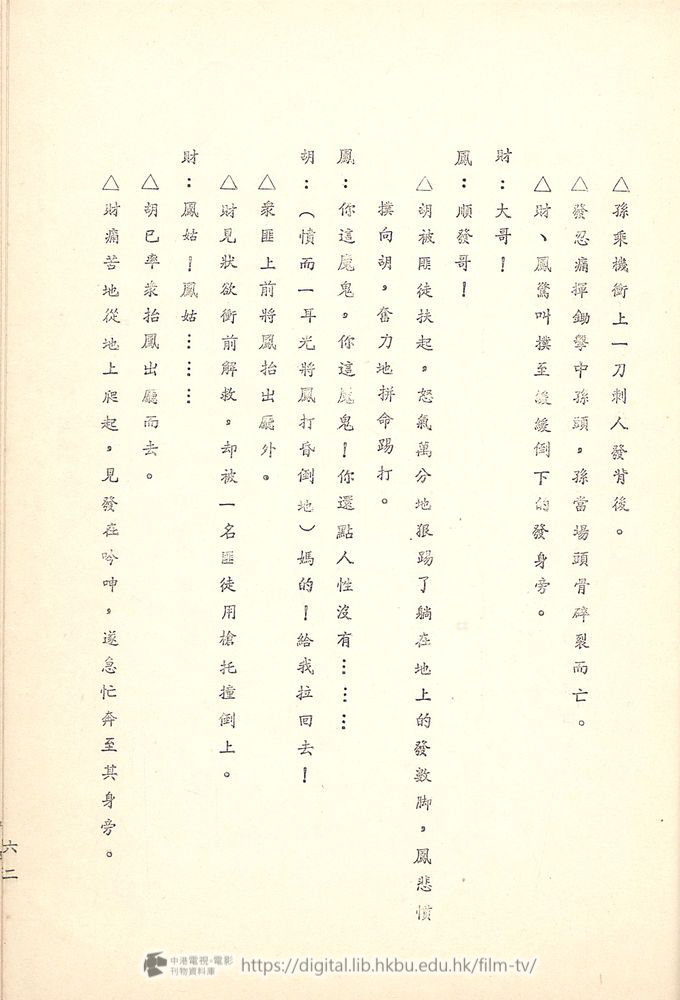 △孫乘機衝上一刀刺入發背後。
△發忍痛揮鋤擊中孫頭，孫當場頭骨碎裂而亡。
△財、鳳驚叫撲至緩緩倒下的發身旁。
財：大哥！
鳳：順發哥！
△胡被匪徒扶起，怒氣萬分地狠踢了躺在地上的發數脚，鳳悲憤
撲向胡，奮力地拼命踢打。
鳳：你這魔鬼，你這魔鬼！你還點人性沒有………
胡：（憤而一耳光將鳳打昏倒地）媽的！給我拉回去！
△衆匪上前將鳳抬出廳外。
△財見狀欲衝前解救，却被一名匪徒用槍托撞倒上。
財：鳳姑！鳳姑………
△胡已率衆抬鳳出廳而去。
△財痛苦地從地上爬起，見發在吟呻，遂急忙奔至其身旁。
六二
中港電視·電影
刊物資料庫
https://digital.lib.hkbu.edu.hk/film-tv/